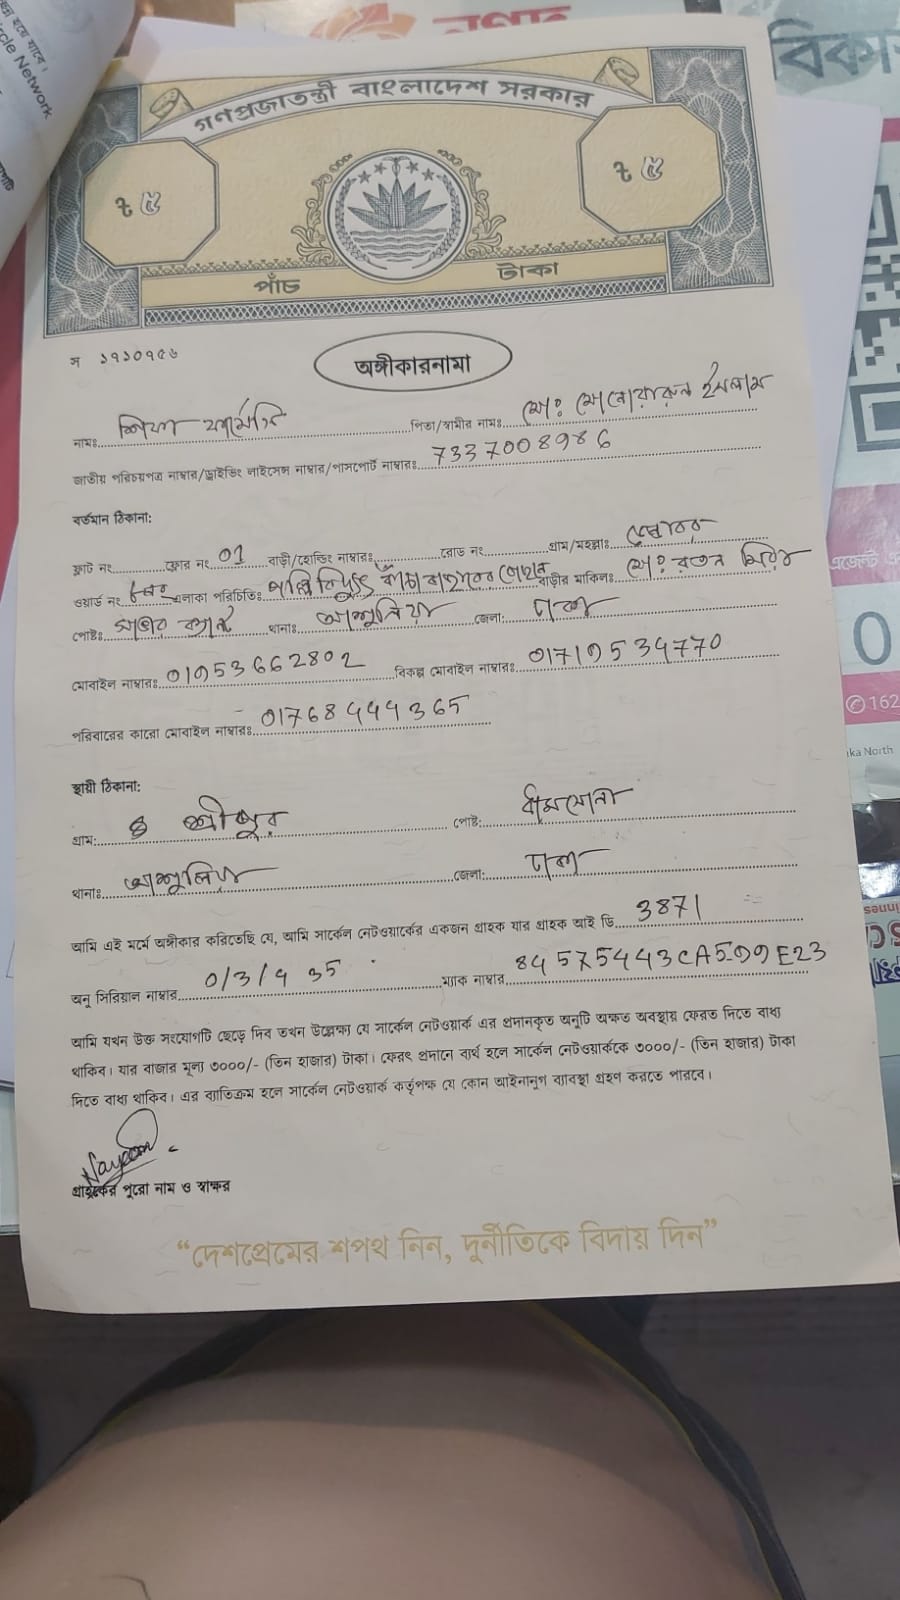 গণপ্রজাতন্ত্রী বাংলাদেশ সরকার
৳ ৫
৳ ৫
পাঁচ টাকা
স ১৭১০৭৫৬
অঙ্গীকারনামা
নামঃ শিফা ফার্মেসি পিতা/স্বামীর নামঃ মো: মোনোয়ারুল ইসলাম
জাতীয় পরিচয়পত্র নাম্বার/ড্রাইভিং লাইসেন্স নাম্বার/পাসপোর্ট নাম্বারঃ 7337008986
বর্তমান ঠিকানা:
ফ্লাট নং ফ্লোর নং 01 বাড়ী/হোল্ডিং নাম্বারঃ রোড নং গ্রাম/মহল্লাঃ
ওয়ার্ড নং এলাকা পরিচিতিঃ পল্লি বিদ্যুৎ কাঁচা বাজারের পেছনে বাড়ীর মালিকঃ মো: রতন মিয়া
পোষ্টঃ সাভার ক্যান্ট থানাঃ আশুলিয়া জেলা: ঢাকা
মোবাইল নাম্বারঃ 01953662802 বিকল্প মোবাইল নাম্বারঃ 01719534770
পরিবারের কারো মোবাইল নাম্বারঃ 01768444365
স্থায়ী ঠিকানা:
গ্রাম: শ্রীপুর পোষ্ট: ধামসোনা
থানাঃ আশুলিয়া জেলা: ঢাকা
আমি এই মর্মে অঙ্গীকার করিতেছি যে, আমি সার্কেল নেটওয়ার্কের একজন গ্রাহক যার গ্রাহক আই ডি 3871
অনু সিরিয়াল নাম্বার 0/3/4 35 ম্যাক নাম্বার 84575443CA599E23
আমি যখন উক্ত সংযোগটি ছেড়ে দিব তখন উল্লেক্ষ্য যে সার্কেল নেটওয়ার্ক এর প্রদানকৃত অনুটি অক্ষত অবস্থায় ফেরত দিতে বাধ্য
থাকিব। যার বাজার মূল্য ৩০০০/- (তিন হাজার) টাকা। ফেরৎ প্রদানে ব্যর্থ হলে সার্কেল নেটওয়ার্ককে ৩০০০/- (তিন হাজার) টাকা
দিতে বাধ্য থাকিব। এর ব্যতিক্রম হলে সার্কেল নেটওয়ার্ক কর্তৃপক্ষ যে কোন আইনানুগ ব্যবস্থা গ্রহণ করতে পারবে।
Nayeem
গ্রাহকের পুরো নাম ও স্বাক্ষর
“দেশপ্রেমের শপথ নিন, দুর্নীতিকে বিদায় দিন”
rcle Network
নগদ
বিকা
এজেন্ট
0
162
ka North